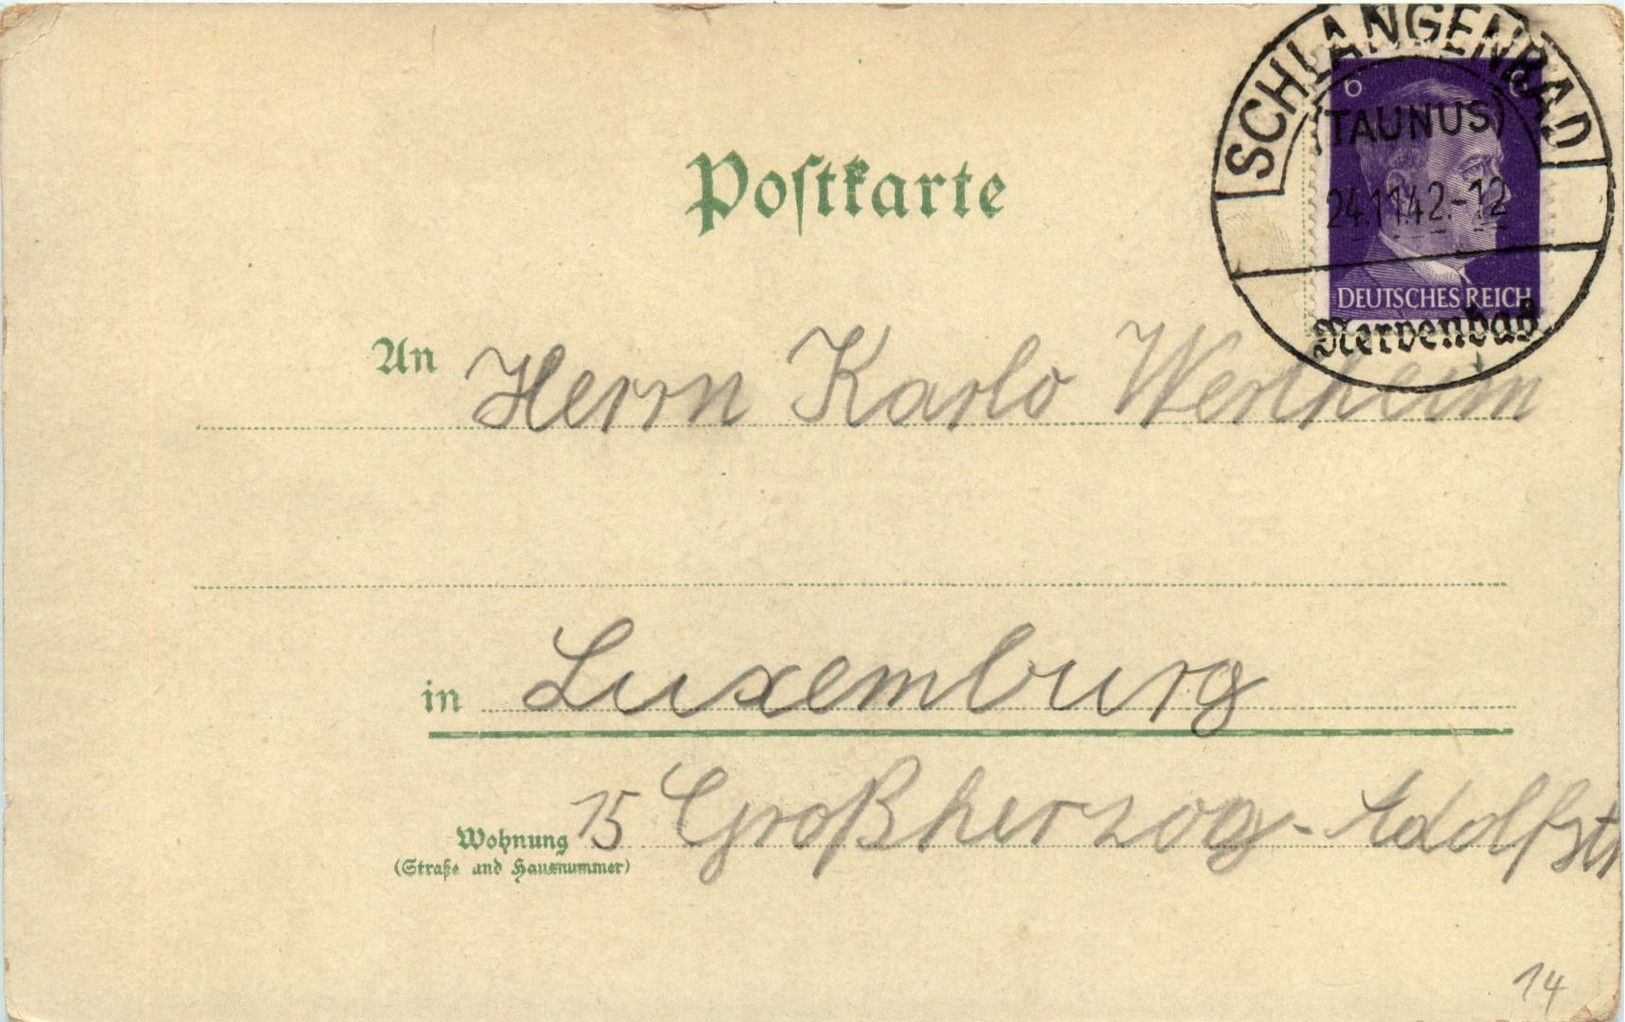 SCHLANGENBAD
6 6
(TAUNUS)
24.11.42.-12
DEUTSCHES REICH
Nervenbad
Postkarte
An Herrn Karlo Wertheim
in Luxemburg
Wohnung 15 Großherzog-Adolfstr
(Straße und Hausnummer)
14